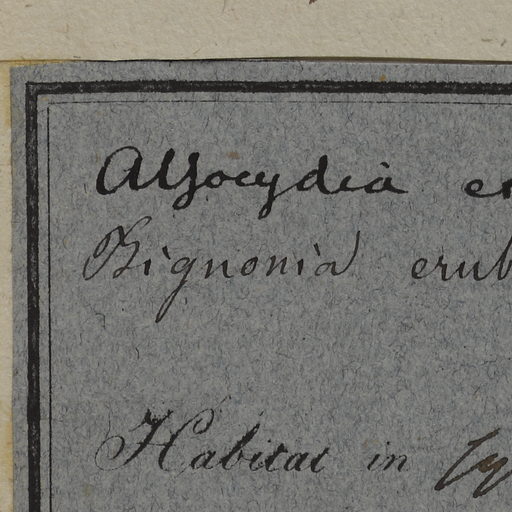 Alsocydia er
Bignonia erub
Habitat in